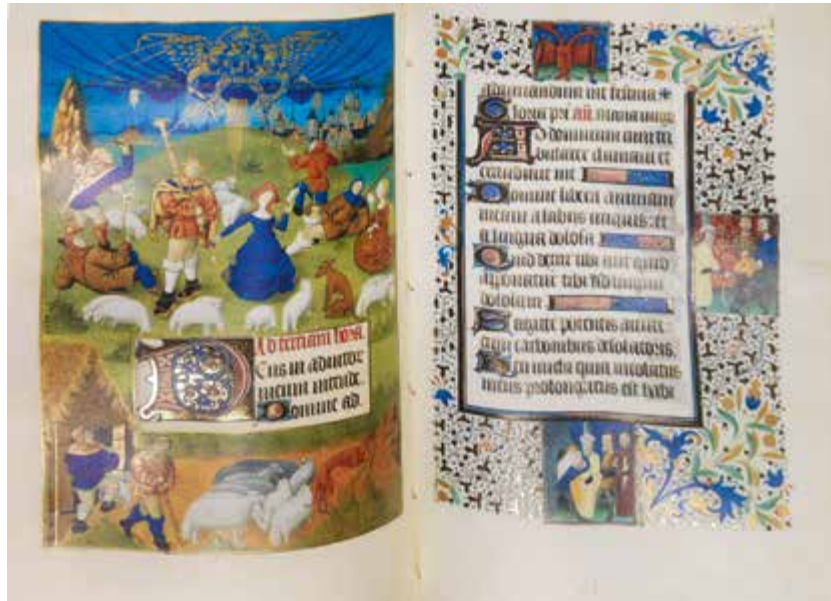 Ad terciam hora.
Deus in adiutor
meum intende.
Domine ad.
adiuvandum me festina
Gloria pri añ
Ad dominum cum tri
bularer clamavi et
exaudivit me
Domine libera animam
meam a labiis iniquis: et
a lingua dolosa
Quid detur tibi aut quid
apponatur tibi ad linguam
dolosam
Sagitte potentis acute
cum carbonibus desolatoriis.
Heu michi quia incolatus
meus prolongatus est habi